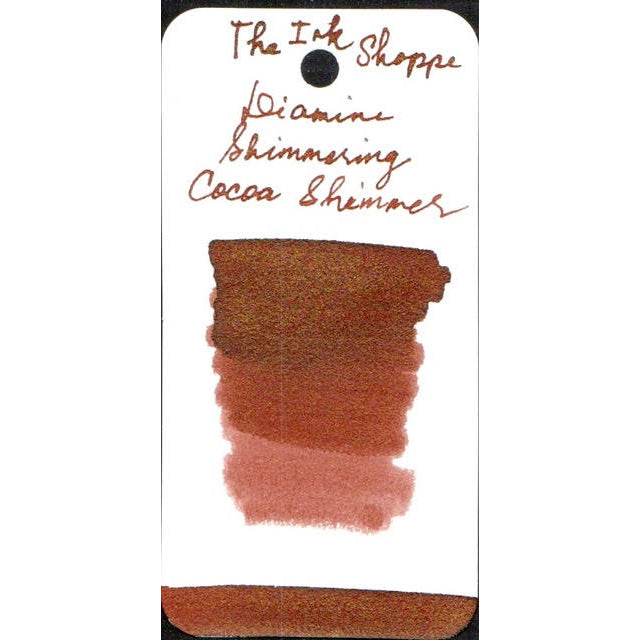 The Ink Shoppe
Diamine
Shimmering
Cocoa Shimmer